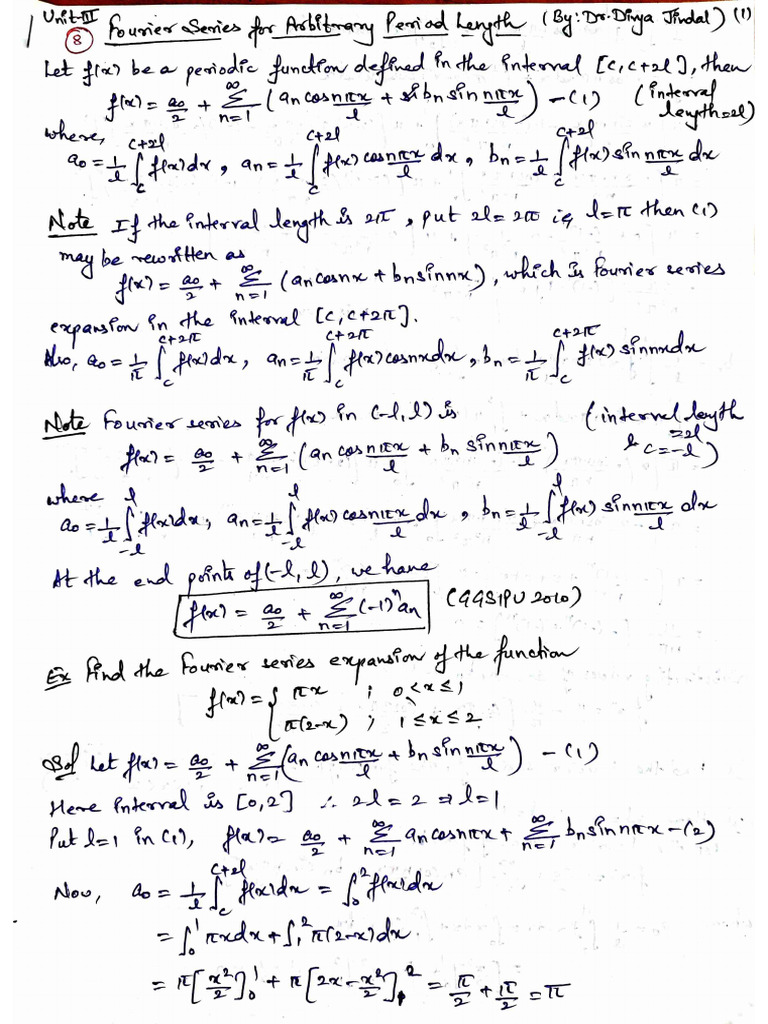 Unit-III
⑧ Fourier Series for Arbitrary Period Length (By: Dr. Divya Jindal) (1)
Let f(x) be a periodic function defined in the interval [c, c+2l], then
f(x) = a₀/2 + ∑_{n=1}^{∞} (aₙ cos nπx/l + bₙ sin nπx/l) – (1) (interval length = 2l)
where,
a₀ = 1/l ∫_c^{c+2l} f(x)dx, aₙ = 1/l ∫_c^{c+2l} f(x) cos nπx/l dx, bₙ = 1/l ∫_c^{c+2l} f(x) sin nπx/l dx
Note If the interval length is 2π, put 2l = 2π ie l = π then (1)
may be rewritten as
f(x) = a₀/2 + ∑_{n=1}^{∞} (aₙ cosnx + bₙ sinnx), which is fourier series
expansion in the interval [c, c+2π].
Also, a₀ = 1/π ∫_c^{c+2π} f(x)dx, aₙ = 1/π ∫_c^{c+2π} f(x) cosnxdx, bₙ = 1/π ∫_c^{c+2π} f(x) sinnxdx
Note Fourier series for f(x) in (-l, l) is (interval length = 2l & c = -l)
f(x) = a₀/2 + ∑_{n=1}^{∞} (aₙ cos nπx/l + bₙ sin nπx/l)
where
a₀ = 1/l ∫_{-l}^{l} f(x)dx, aₙ = 1/l ∫_{-l}^{l} f(x) cos nπx/l dx, bₙ = 1/l ∫_{-l}^{l} f(x) sin nπx/l dx
At the end points of (-l, l), we have
f(x) = a₀/2 + ∑_{n=1}^{∞} (-1)ⁿ aₙ (GGSIPU 2010)
Ex Find the Fourier series expansion of the function
f(x) = { πx ; 0<x≤1
π(2-x) ; 1≤x≤2
Sol Let f(x) = a₀/2 + ∑_{n=1}^{∞} (aₙ cos nπx/l + bₙ sin nπx/l) – (1)
Here interval is [0,2] ∴ 2l = 2 ⇒ l = 1
Put l=1 in (1), f(x) = a₀/2 + ∑_{n=1}^{∞} aₙ cosnπx + ∑_{n=1}^{∞} bₙ sinnπx – (2)
Now, a₀ = 1/l ∫_c^{c+2l} f(x)dx = ∫₀² f(x)dx
= ∫₀¹ πxdx + ∫₁² π(2-x)dx.
= π[x²/2]₀¹ + π[2x - x²/2]₁² = π/2 + π/2 = π